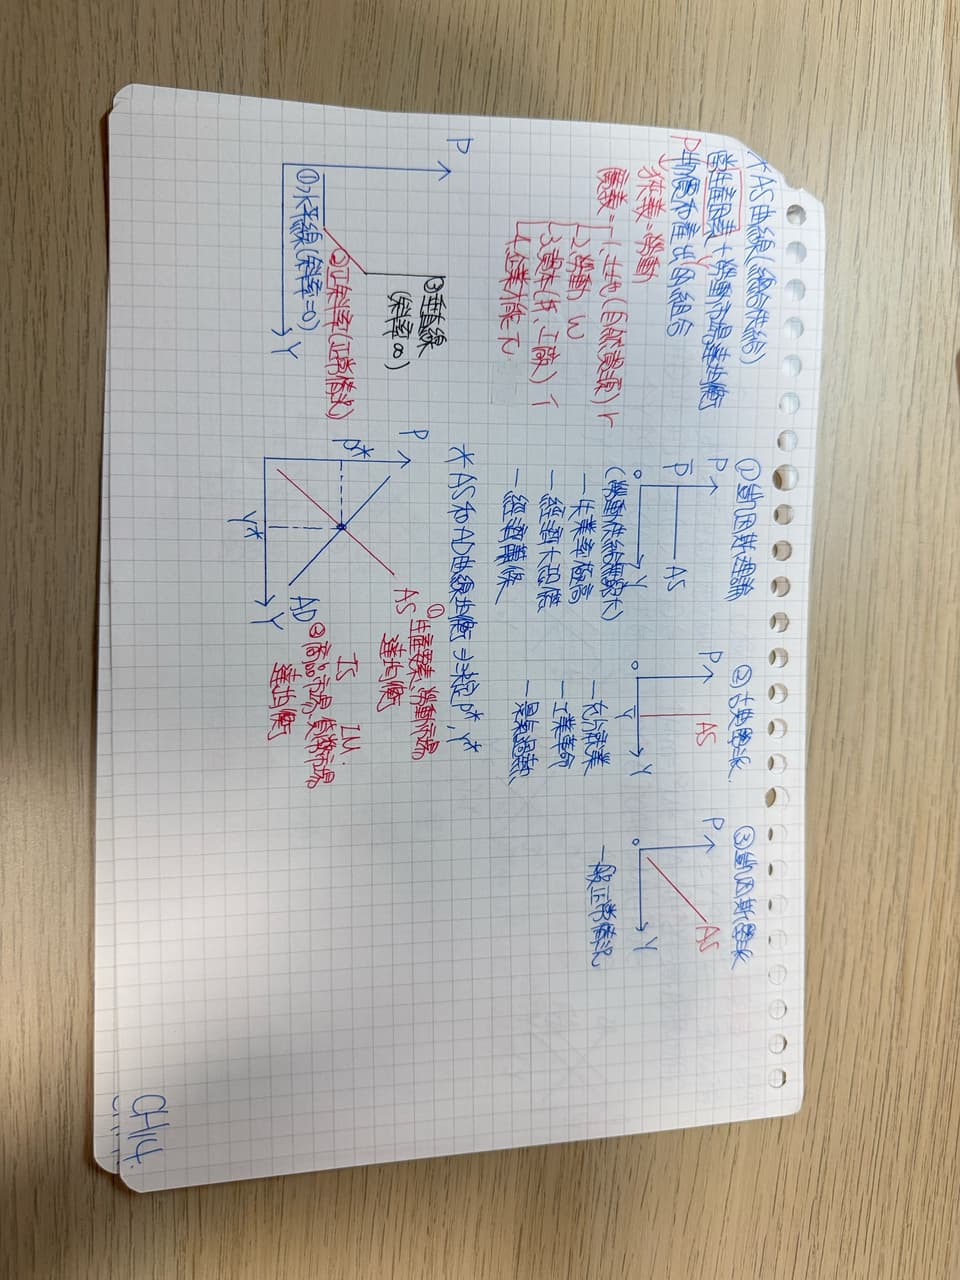 * AS曲線(總合供給)
當生產因素+勞動市場達均衡
P 物價和產出的組合 Y
狹義=勞動
廣義=1.土地(自然資源) r
2.勞動 w
3.資本(技、工廠) i
4.企業才能 π
P
③垂直線
(斜率∞)
②正斜率(正常情況)
①水平線(斜率=0)
Y
①凱因斯理論
P
P̅
AS
0
Y
(勞動供給無限大)
-失業率極高
-經濟大恐慌
-經濟蕭條
②古典學派
P
AS
0
Y̅
Y
-充分就業
-工業革命
-景氣過熱
③凱因斯學派
P
AS
0
Y
一般正常情況
* AS和AD曲線均衡⇒決定P*, Y*
P
AS
①生產要素、勞動市場
達均衡
P*
Y*
Y
AD
IS LM
②商品市場、貨幣市場
達均衡
CH14.